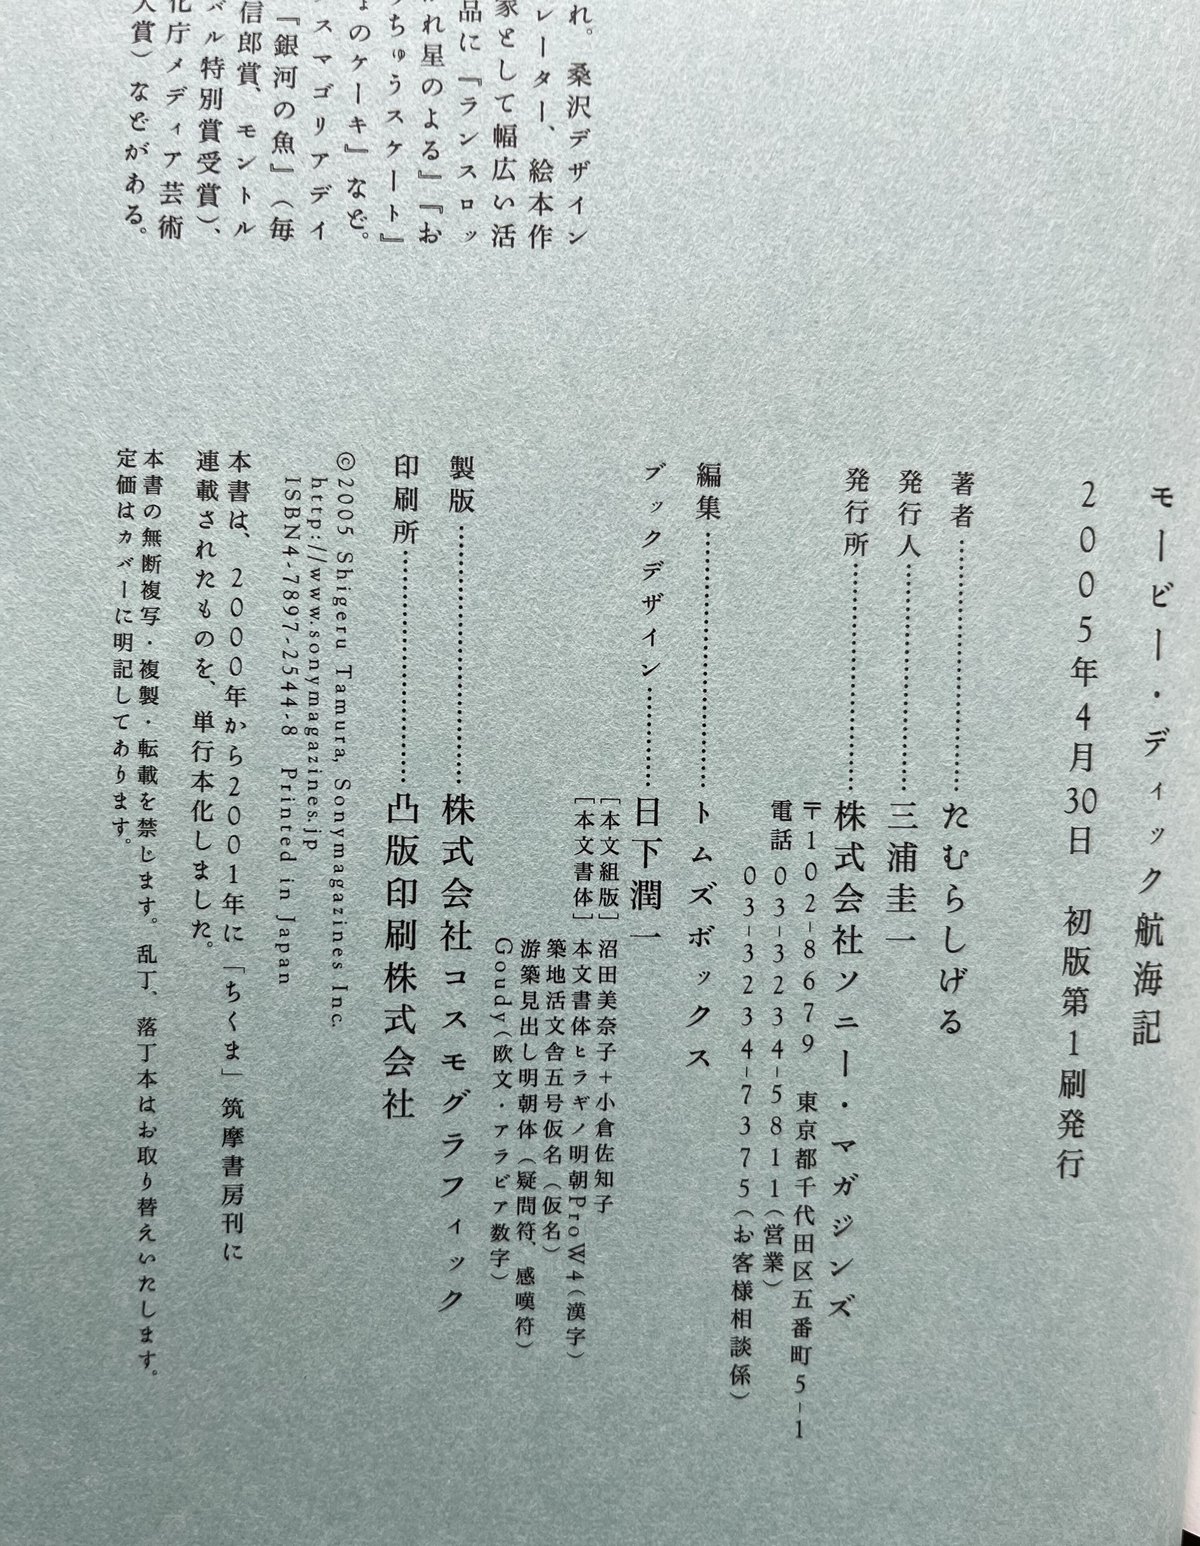 れ。桑沢デザイン
レーター、絵本作
家として幅広い活
品に『ランスロッ
れ星のよる』『お
ちゅうスケート』
のケーキ』など。
スマゴリアデイ
『銀河の魚』（毎
信郎賞、モントル
バル特別賞受賞）、
化庁メディア芸術
人賞）などがある。
モービー・ディック航海記
2005年4月30日　初版第1刷発行
著者…………………たむらしげる
発行人…………………三浦圭一
発行所…………………株式会社ソニー・マガジンズ
〒102-8679　東京都千代田区五番町5-1
電話 03-3234-5811（営業）
03-3234-7375（お客様相談係）
編集…………………トムズボックス
ブックデザイン…………日下潤一
［本文組版］沼田美奈子＋小倉佐知子
［本文書体］本文書体ヒラギノ明朝ProW4（漢字）
築地活文舎五号仮名（仮名）
游築見出し明朝体（疑問符、感嘆符）
Goudy（欧文・アラビア数字）
製版…………………株式会社コスモグラフィック
印刷所…………………凸版印刷株式会社
©2005 Shigeru Tamura, Sonymagazines Inc.
http://www.sonymagazines.jp
ISBN4-7897-2544-8 Printed in Japan
本書は、2000年から2001年に「ちくま」筑摩書房刊に
連載されたものを、単行本化しました。
本書の無断複写・複製・転載を禁じます。乱丁、落丁本はお取り替えいたします。
定価はカバーに明記してあります。